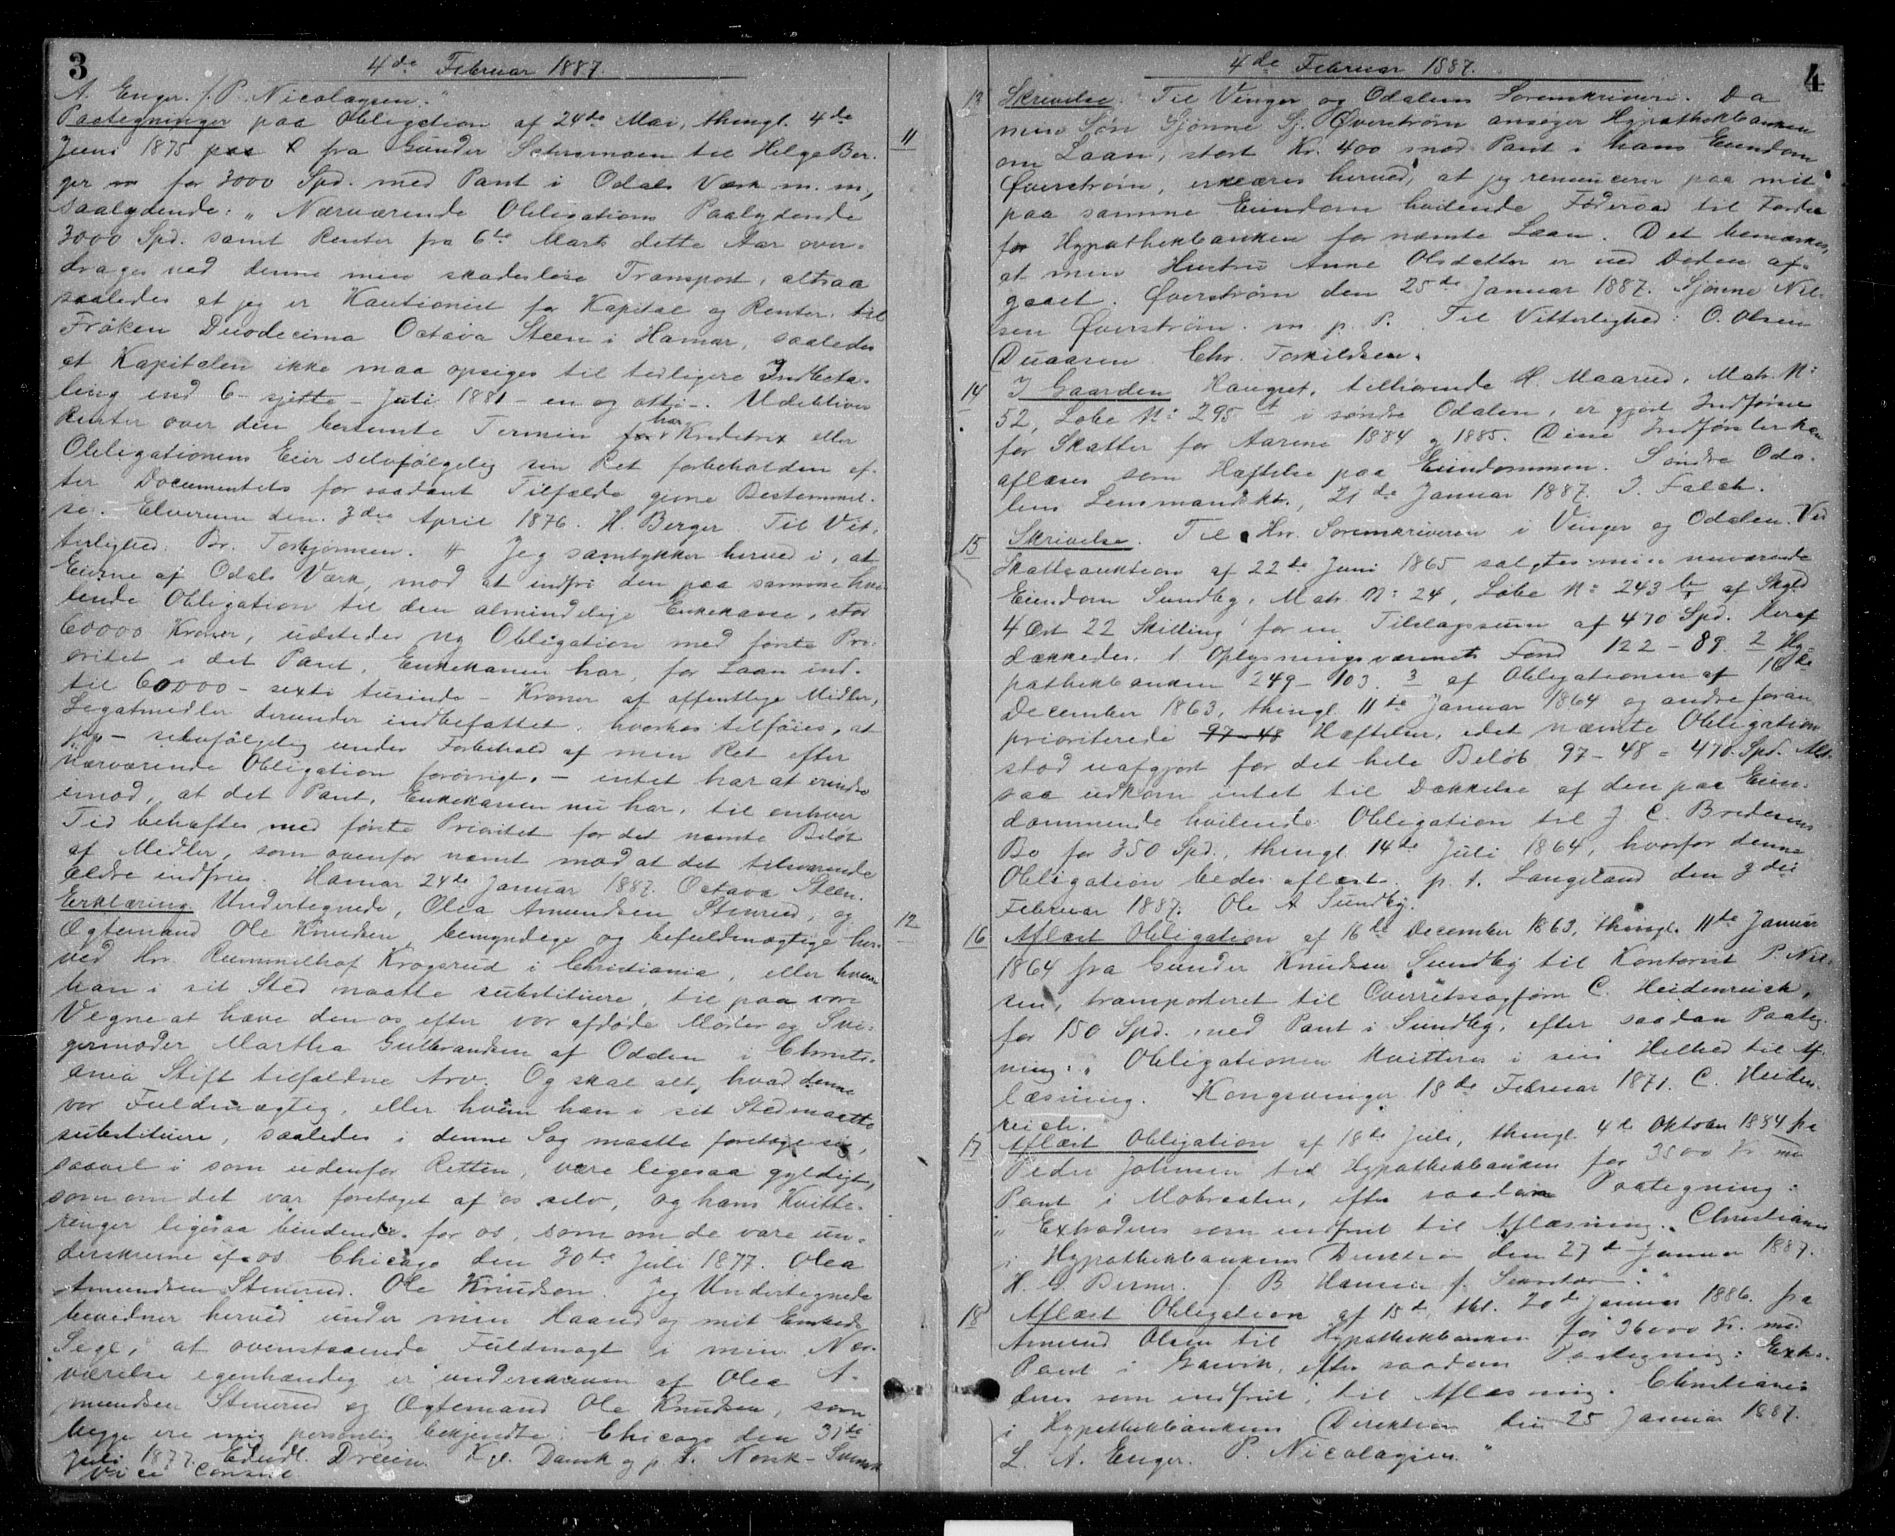 3
4de Februar 1887.
A. Enger. /. P. Nicolaysen."
11
Paategninger paa Obligation af 24de Mai, thingl. 4de
Juni 1875 fra Gunder Sætersmoen til Helge Ber-
ger for 3000 Spd. med Pant i Odals Værk m. m,
saalydende: „Nærværende Obligations Paalydende
3000 Spd. samt Renter fra 6te Marts dette Aar over-
drages ved denne min skadesløse Transport, altsaa
saaledes at jeg er Kautionist for Kapital og Renter, til
Frøken Duodecima Octava Steen i Hamar, saaledes
at Kapitalen ikke maa opsiges til tidligere Indbeta-
ling end 6 - sjette - Juli 1881 - en og otti -. Udebliver
Renter over den bestemte Termin har Kreditrix eller
Obligationens Eier selvfølgelig sin Ret forbeholden ef-
ter Documentets for saadant Tilfælde givne Bestemmel-
se. Elverum den 3die April 1876. H. Berger. Til Vit-
terlighed. Br. Torbjørnsen. # Jeg samtykker herved i, at
Eierne af Odals Værk, mod at indfri den paa samme hvi-
lende Obligation til den almindelige Enkekasse, stor
60000 Kroner, udsteder ny Obligation med første Pri-
oritet i det Pant, Enkekassen har, for Laan ind-
til 60000 - sexti tusinde - Kroner af offentlige Midler,
Legatmidler derunder indbefattet, hvorhos tilføies, at
jeg - selvfølgelig under Forbehold af min Ret efter
nærværende Obligation forøvrigt, - intet har at erindre
imod, at det Pant, Enkekassen nu har, til enhver
Tid behæftes med første Prioritet for det nævnte Beløb
af Midler, som ovenfor nævnt mod at det tilsvarende
ældre indfries. Hamar 24de Januar 1887. Octava Steen.
12
Erklæring. Undertegnede, Olea Amundsen Stenrud, og
Ægtemand Ole Knudsen, bemyndige og befuldmægtige her-
ved Hr. Rummelhof Krogsrud i Christiania, eller hvem
han i sit Sted maatte substituere, til paa vore
Vegne at hæve den os efter vor afdøde Moder og Svi-
germoder Martha Gulbrandsen af Odden i Christi-
ania Stift tilfaldne Arv. Og skal alt, hvad denne
vor Fuldmægtig, eller hvem han i sit Sted maatte
substituere, saaledes i denne Sag maatte foretage sig,
saavel i som udenfor Retten, være ligesaa gyldigt,
som om det var foretaget af os selv, og hans Kvitte-
ringer ligesaa bindende for os, som om de vare un-
derskrevne af os. Chicago den 30te Juli 1877. Olea
Amundsen Stenrud. Ole Knudsen. Jeg Undertegnede
bevidner herved under min Haand og mit Embeds
Segl, at ovenstaaende Fuldmagt i min Nær-
værelse egenhændig er underskreven af Olea A-
mundsen Stenrud og Ægtemand Ole Knudsen, som
begge ere mig personlig bekjendte. Chicago den 31te
Juli 1877. Kgl. Dansk og p. t. Norsk-Svensk
Vice Consul
4
4de Februar 1887.
13 Skrivelse. Til Vinger og Odalens Sorenskriveri. Da
min Søn Sjønne Sj. Øverstrøm ansøger Hypothekbanken
om Laan, stort Kr. 400 mod Pant i hans Eiendom
Øverstrøm, erklæres herved, at jeg renuncerer paa mit
paa samme Eiendom hvilende Føderaad til Fordel
for Hypothekbanken for nævnte Laan. Det bemærkes,
at min Hustru Anne Olsdatter er ved Døden af-
gaaet. Øverstrøm den 25de Januar 1887. Sjønne Nil-
sen Øverstrøm. m. p. P. Til Vitterlighed: O. Olsen
Duaaren. Chr. Torkildsen.
14 I Gaarden Haugset, tilhørende H. Maarud, Matr. N:
52, Løbe N: 295 i søndre Odalen, er gjort Indførsel
for Skatter for Aarene 1884 og 1885. Disse Indførsler kan
aflæses som Hæftelse paa Eiendommen. Søndre Oda-
lens Lensmandskt., 21de Januar 1887. J. Falch.
15 Skrivelse. Til Hr. Sorenskriveren i Vinger og Odalen. Ved
Skatteauktion af 22de Juni 1865 solgtes min nuværende
Eiendom Sundby, Matr. N: 24, Løbe N: 243 b af Skyld
4 Ort 22 Skilling for en Tilslagssum af 470 Spd. Heraf
dækkedes. 1 Oplysningsvæsenets Fond 122 - 89. 2 Hy-
pothekbanken 249 - 103. 3 af Obligationen af 16de
December 1863, thingl. 11te Januar 1864 og andre foran
prioriterede 97-48 Hæftelser, idet nævnte Obligation
stod uafgjort for det hele Beløb 97 - 48 = 470 Spd. Alt-
saa udkom intet til Dækkelse af den paa Eien-
dommende hvilende Obligation til J. C. Bredesens
Bo for 350 Spd., thingl. 14de Juli 1864, hvorfor denne
Obligation bedes aflæst. p. t. Langeland den 3die
Februar 1887. Ole A Sundby.
16 Aflæst Obligation af 16de December 1863, thingl. 11te Januar
1864 fra Gunder Knudsen Sundby til Kontorist P. Nil-
sen, transporteret til Overretssagfører C. Heidenreich,
for 150 Spd. med Pant i Sundby, efter saadan Paateg-
ning: „Obligationen kvitteres i sin Helhed til Af-
læsning. Kongsvinger 18de Februar 1871. C. Heiden-
reich.
17 Aflæst Obligation af 18de Juli, thingl. 4de Oktober 1884 fra
Peder Johnsen til Hypothekbanken for 3500 Kr. med
Pant i Mobraaten, efter saadan Paategning:
„Extraderes som indfriet til Aflæsning. Christiania
i Hypothekbankens Direktion den 27de Januar 1887.
H. E. Berner. /. B Hansen f. Sekretær."
18 Aflæst Obligation af 15de, thl. 20de Januar 1886 fra
Amund Olsen til Hypothekbanken for 36000 Kr. med
Pant i Garvik, efter saadan Paategning: Extra-
deres som indfriet til Aflæsning. Christiania
i Hypothekbankens Direktion den 25 Januar 1887.
L. A. Enger. P. Nicolaysen."